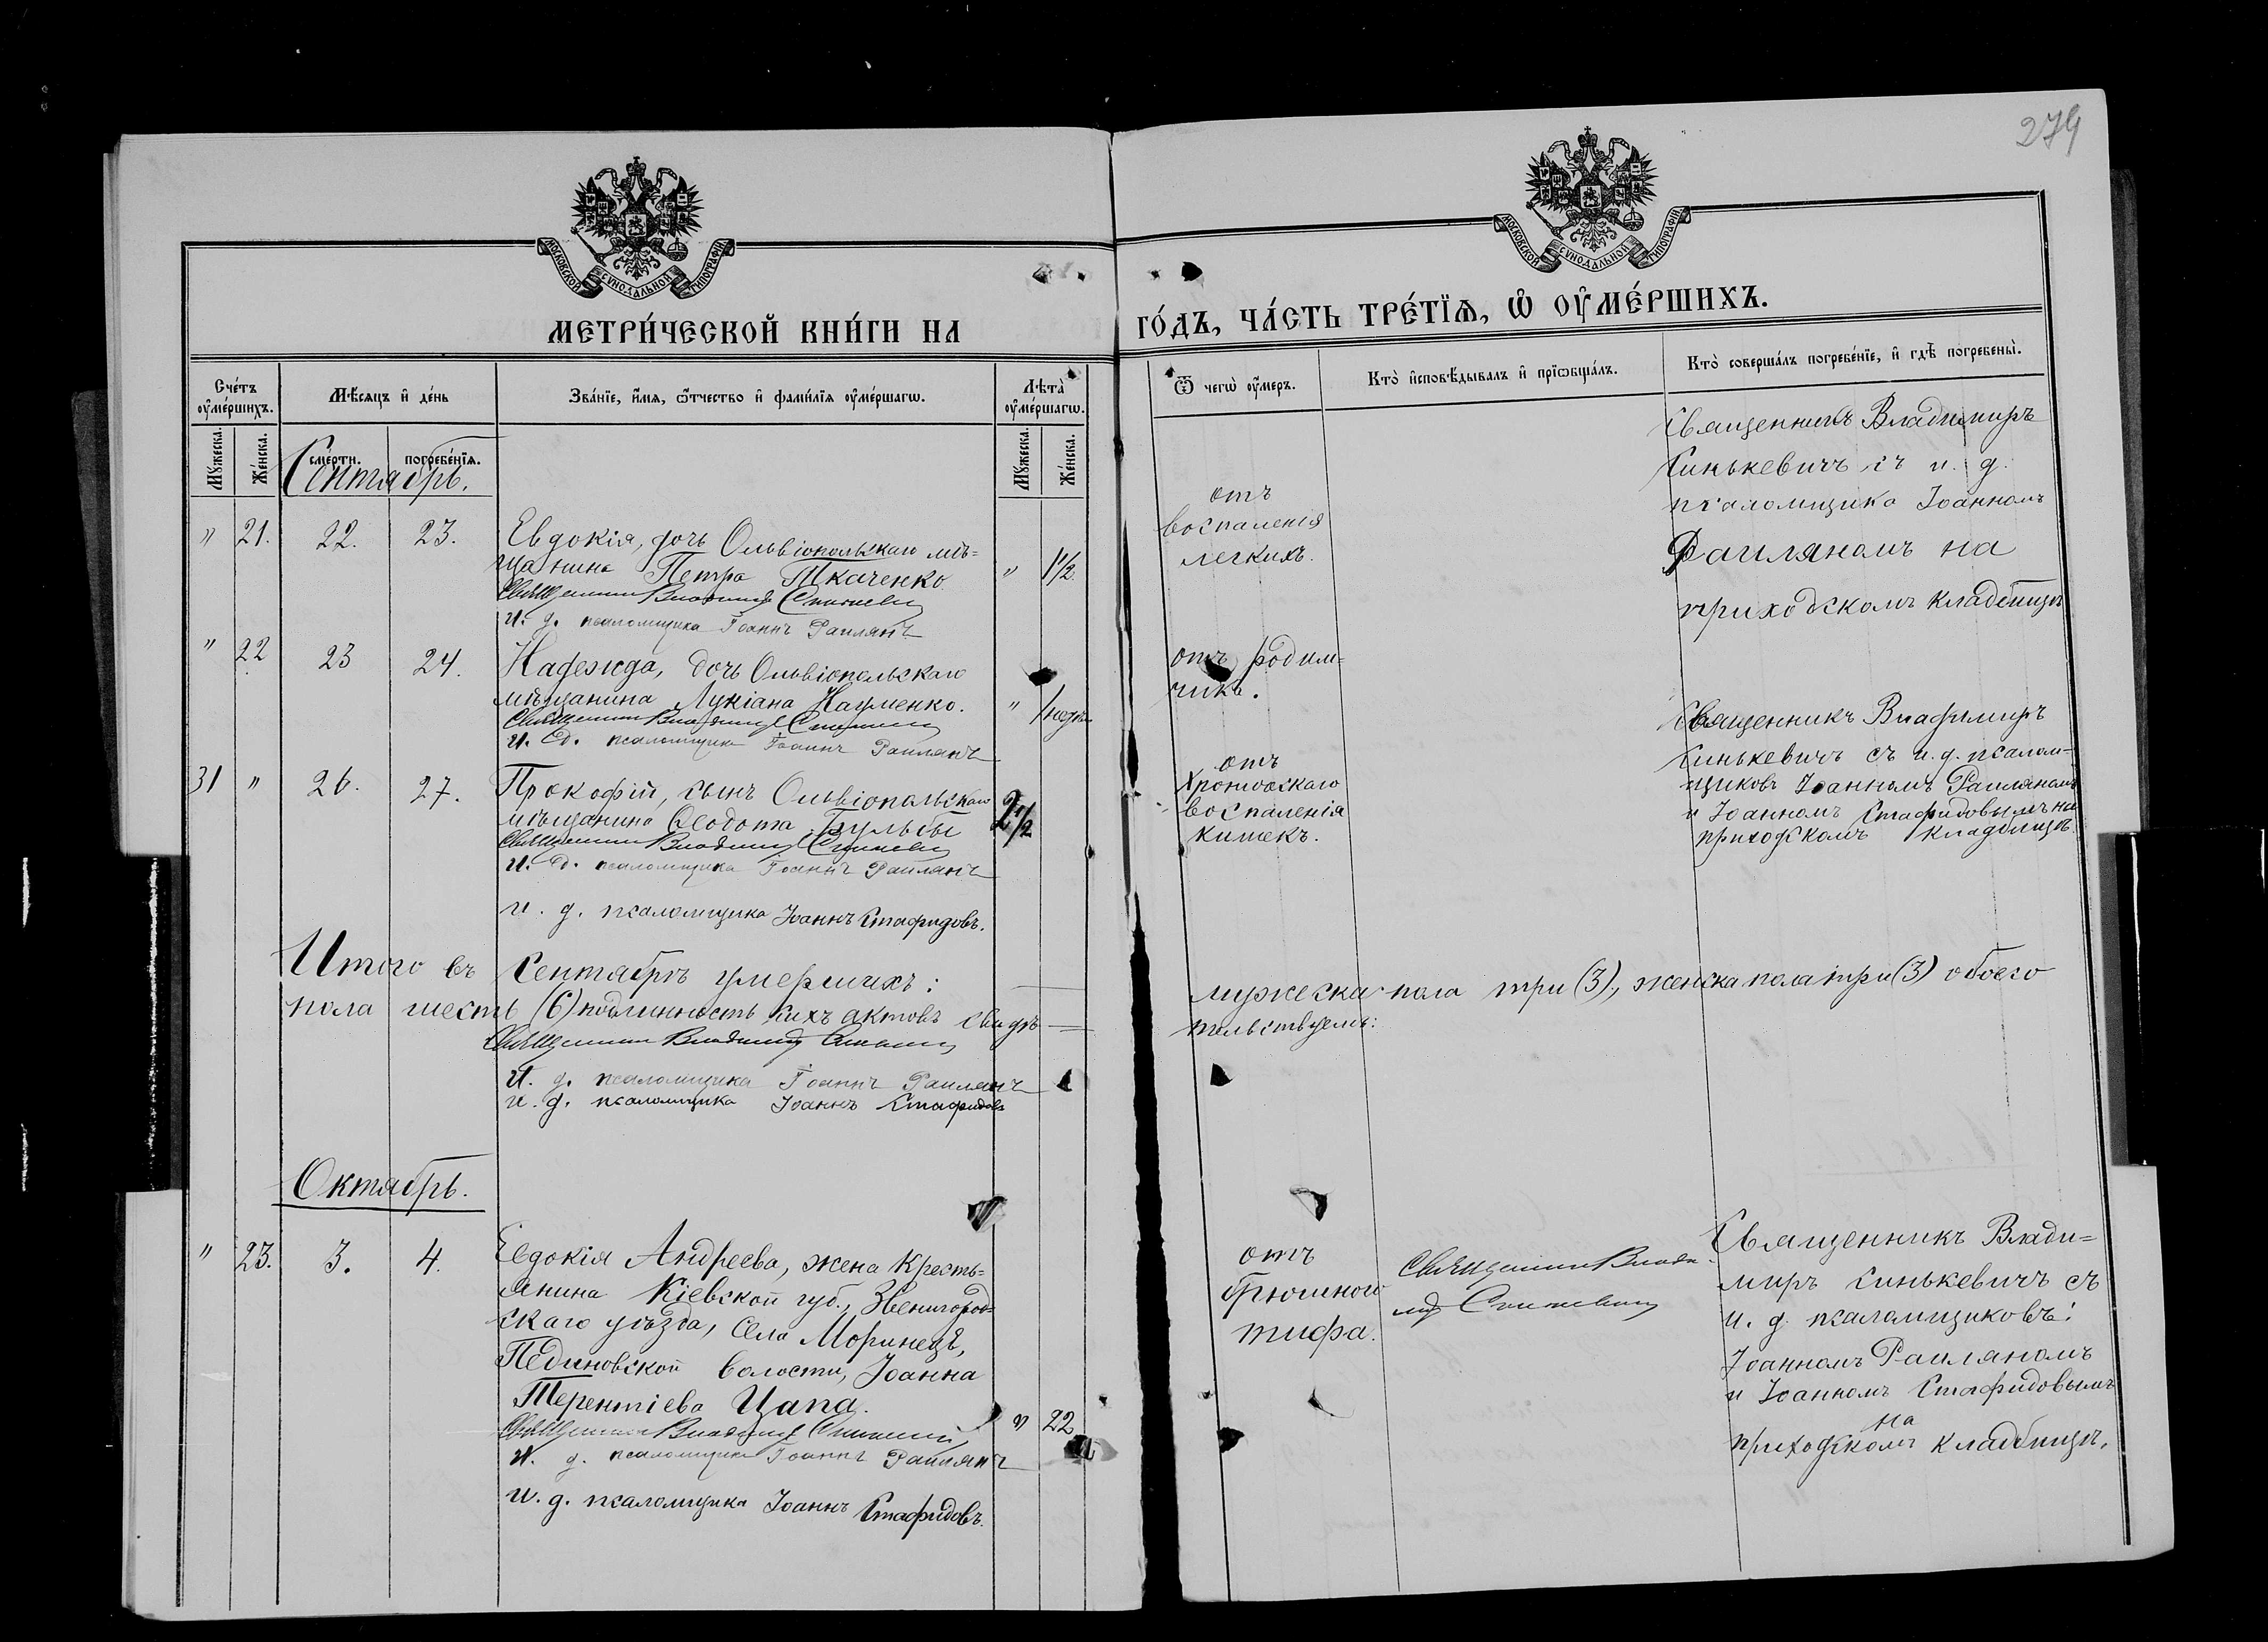 274
МОСКОВСКОЙ СѴНОДАЛЬНОЙ ТИПОГРАФІИ
МОСКОВСКОЙ СѴНОДАЛЬНОЙ ТИПОГРАФІИ
МЕТРИ́ЧЕСКОЙ КНИ́ГИ НА
ГО́ДЪ, ЧА́СТЬ ТРЕ́ТЇѦ, Ѡ҆ ОУ҆МЕ́РШИХЪ.
Сче́тъ оу҆ме́ршихъ.
Мѣ́сяцъ и҆ де́нь
Зва́нїе, и҆́мѧ, ѻ҆́тчество и҆ фами́лїѧ оу҆ме́ршагѡ.
Лѣ́та оу҆ме́ршагѡ.
Мꙋ́жеска.
Же́нска.
сме́рти.
погребе́нїѧ.
Мꙋ́жеска.
Же́нска.
Ѿ чегѡ̀ оу҆́меръ.
Кто̀ и҆сповѣ́дывалъ и҆ прїѡбща́лъ.
Кто̀ соверша́лъ погребе́нїе, и҆ гдѣ̀ погребены̀.
Сентябрь.
" 21. 22. 23. Евдокія, дочь Ольвіопольскаго мѣ=
щанина Петра Ткаченко. " 1½
Священникъ Владиміръ Синькевичъ
И. д. псаломщика Іоаннъ Раилянъ
отъ
воспаленія
легкихъ.
Священникъ Владимиръ
Синькевичъ съ и. д.
псаломщика Іоанномъ
Раиляномъ на
приходскомъ кладбищѣ
" 22 23 24. Надежда, дочь Ольвіопольскаго
мѣщанина Лукіана Науменко. "
Священникъ Владиміръ Синькевичъ
И. д. псаломщика Іоаннъ Раилянъ
отъ родим=
чика.
31 " 26. 27. Прокофій, сынъ Ольвіопольскаго
мѣщанина Ѳеодота Бульбы 2½
Священникъ Владиміръ Синькевичъ
И. д. псаломщика Іоаннъ Раилянъ
И. д. псаломщика Іоаннъ Стафидовъ.
отъ
хроническаго
воспаленія
кишекъ.
Священникъ Владимиръ
Синькевичъ съ и. д. псалом=
щиковъ Іоанномъ Раиляномъ
и Іоанномъ Стафидовымъ на
приходскомъ кладбищѣ.
Итого въ Сентябрѣ умершихъ: мужеска пола три (3), женска пола три (3) обоего
пола шесть (6) подлинность сихъ актовъ свидѣ= тельствуемъ:
Священникъ Владиміръ Синькевичъ
И. д. псаломщика Іоаннъ Раилянъ
и. д. псаломщика Іоаннъ Стафидовъ
Октябрь.
" 23. 3. 4. Евдокія Андреева, жена кресть=
янина Кіевской губ., Звенигород=
скаго уѣзда, села Моринецъ,
Пединовской волости, Іоанна
Терентіева Цапа. " 22
Священникъ Владиміръ Синькевичъ
И. д. псаломщика Іоаннъ Раилянъ
И. д. псаломщика Іоаннъ Стафидовъ.
отъ
брюшного
тифа.
Священникъ Влади-
міръ Синькевичъ
Священникъ Влади=
миръ Синькевичъ съ
и. д. псаломщиковъ:
Іоанномъ Раиляномъ
и Іоанномъ Стафидовымъ
на
приходскомъ кладбищѣ.